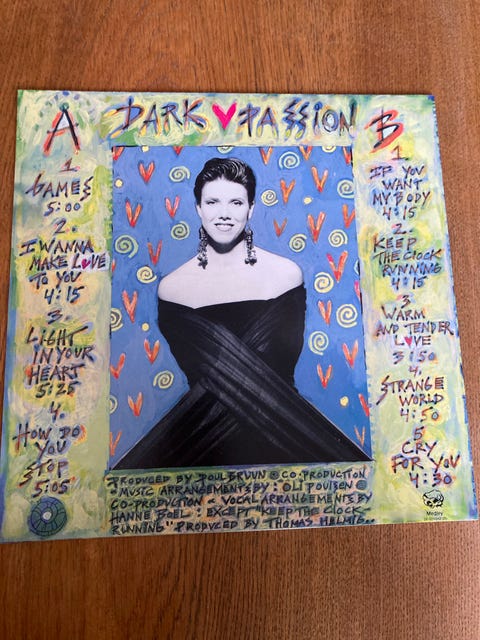 A DARK ♥ PASSION B
1.
GAMES
5:00
2.
I WANNA
MAKE LOVE
TO YOU
4:15
3.
LIGHT
IN YOUR
HEART
5:25
4.
HOW DO
YOU
STOP
5:05
1
IF YOU
WANT
MY BODY
4:15
2.
KEEP
THE CLOCK
RUNNING
4:15
3
WARM
AND TENDER
LOVE
3:50
4.
STRANGE
WORLD
4:50
5
CRY
FOR YOU
4:30
PRODUCED BY POUL BRUUN CO-PRODUCTION
MUSIC ARRANGEMENTS BY: OLI POULSEN
CO-PRODUCTION & VOCAL ARRANGEMENTS BY
HANNE BOEL: EXCEPT "KEEP THE CLOCK
RUNNING" PRODUCED BY THOMAS HELMIG..
Medley